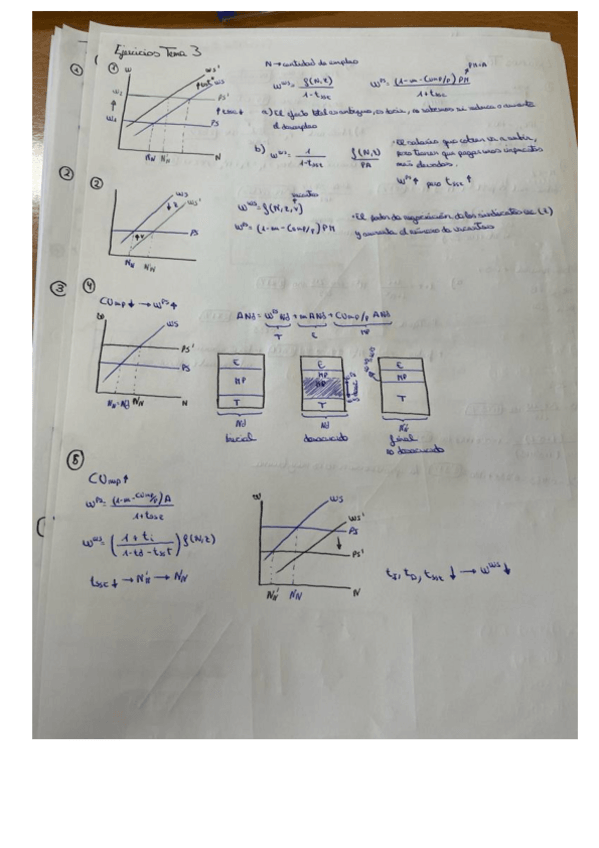 Ejercicios Tema 3
①
①
w
WS'
WS
PS'
PS
N_N N'_N N
N → cantidad de empleo
w^WS = f(N,z) / 1-t_sst
w^PS = (1-m-CUmp/p) PM / 1+t_ssc
PM=A
a) El efecto total es ambiguo, es decir, no sabemos si reduce o aumenta
el desempleo
b) w^WS = 1 / 1-t_sst f(N,z) / PA
· El salario que cobran va a subir,
pero tienen que pagar unos impuestos
más elevados.
w^PS ↑ pero t_sst ↑
②
②
WS
WS'
↓z
↑v
PS
N_N N'_N N
vacantes
w^WS = f(N,z,v)
w^PS = (1-m-CUmp/p) PM
· El poder de negociación de los sindicatos cae (z)
y aumenta el número de vacantes
③
④
CUmp ↓ → w^PS ↑
WS
PS'
PS
N_N=Nd N'_N N
ANd = w^PS Nd + mANd + CUmp/p ANd
T E MP
E
MP
T
Nd
Inicial
E
MP
MP
T
Nd
desacuerdo
E
MP
T
N'_N
final
no desacuerdo
⑤
CUmp ↑
w^PS = (1-m-CUmp/p)A / 1+t_ssc
w^WS = (1+ti / 1-td-t_sst) f(N,z)
t_ssc ↓ → N'_N → N_N
w
WS
WS'
PS
PS'
N'_N N_N N
t_I, t_D, t_sst ↓ → w^WS ↓